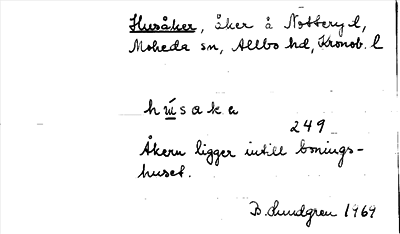 Husåker, åker å Notteryd,
Moheda sn, Allbo hd, Kronob. l
húsaka
249
Åkern ligger intill bonings-
huset.
B. Lundgren 1969